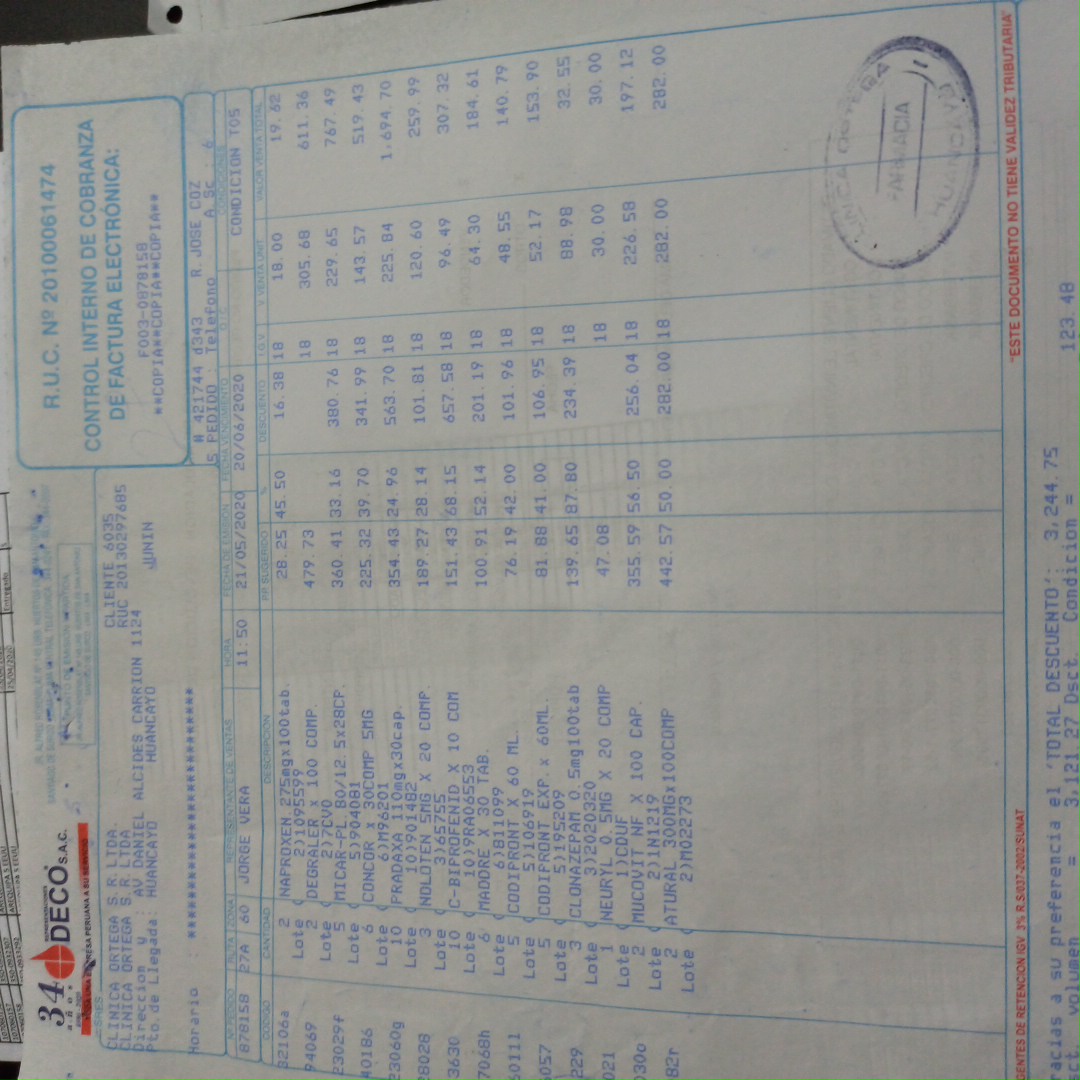 34
años
DECO S.A.C.
R.U.C. Nº 20100061474
CONTROL INTERNO DE COBRANZA
DE FACTURA ELECTRÓNICA:
F003-0878158
**COPIA**COPIA**COPIA**
CLINICA ORTEGA S.R.LTDA. CLIENTE 6035
CLINICA ORTEGA S.R. LTDA RUC 20130297685
Direccion y : AV DANIEL ALCIDES CARRION 1124
Pto.de Llegada: HUANCAYO HUANCAYO JUNIN
# 421744 d343 R.JOSE COZ
5 PEDIDO : Telefono A Sc : 6
Horario : *************************
Nº PEDIDO RUTA ZONA REPRESENTANTE DE VENTAS HORA FECHA DE EMISION FECHA VENCIMIENTO O.I.C. CONDICIONES
878158 27A 60 JORGE VERA 11:50 21/05/2020 20/06/2020 CONDICION T05
CODIGO CANTIDAD DESCRIPCION P.P. SUGERIDO % DESCUENTO I.G.V. V.VENTA UNIT. VALOR VENTA TOTAL
32106a 2 NAPROXEN.275mgx100tab. 28.25 45.50 16.38 18 18.00 19.62
Lote ( 2)1095599
94069 2 DEGRALER x 100 COMP. 479.73 18 305.68 611.36
Lote ( 2)7CV0
23029f 5 MICAR-PL.80/12.5x28CP. 360.41 33.16 380.76 18 229.65 767.49
Lote ( 5)904081
40186 6 CONCOR x 30COMP 5MG 225.32 39.70 341.99 18 143.57 519.43
Lote ( 6)M96201
23060g 10 PRADAXA 110mgx30cap. 354.43 24.96 563.70 18 225.84 1,694.70
Lote ( 10)901482
28028 3 NOLOTEN 5MG X 20 COMP. 189.27 28.14 101.81 18 120.60 259.99
Lote ( 3)65755
3630 10 C-BIPROFENID X 10 COM 151.43 68.15 657.58 18 96.49 307.32
Lote ( 10)9RA06553
7068h 6 MADDRE X 30 TAB. 100.91 52.14 201.19 18 64.30 184.61
Lote ( 6)811099
60111 5 CODIPRONT X 60 ML. 76.19 42.00 101.96 18 48.55 140.79
Lote ( 5)106919
6057 5 CODIPRONT EXP. x 60ML. 81.88 41.00 106.95 18 52.17 153.90
Lote ( 5)195209
229 3 CLONAZEPAM 0.5mg100tab 139.65 87.80 234.39 18 88.98 32.55
Lote ( 3)2020320
021 1 NEURYL 0.5MG X 20 COMP 47.08 18 30.00 30.00
Lote ( 1)CDUF
030o 2 MUCOVIT NF X 100 CAP. 355.59 56.50 256.04 18 226.58 197.12
Lote ( 2)1N1219
82r 2 ATURAL 300MGx100COMP 442.57 50.00 282.00 18 282.00 282.00
Lote ( 2)M02273
CLINICA ORTEGA
FARMACIA
HUANCAYO
GENTES DE RETENCION IGV 3% R.S/037-2002/SUNAT
"ESTE DOCUMENTO NO TIENE VALIDEZ TRIBUTARIA"
racias a su preferencia el 'TOTAL DESCUENTO': 3,244.75
sct. volumen = 3,121.27 Dsct. Condicion = 123.48